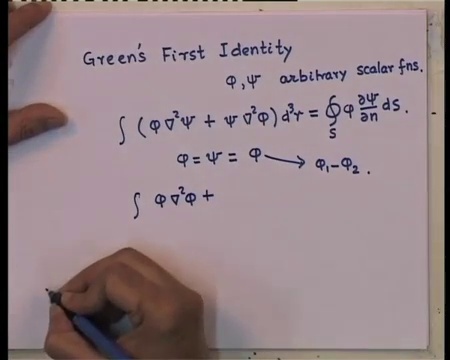 Green's First Identity
φ, ψ arbitrary scalar fns.
∫ (φ∇²ψ + ψ∇²φ) d³r = ∮_S φ ∂ψ/∂n dS.
φ = ψ = φ ⟶ φ₁ - φ₂.
∫ φ∇²φ +